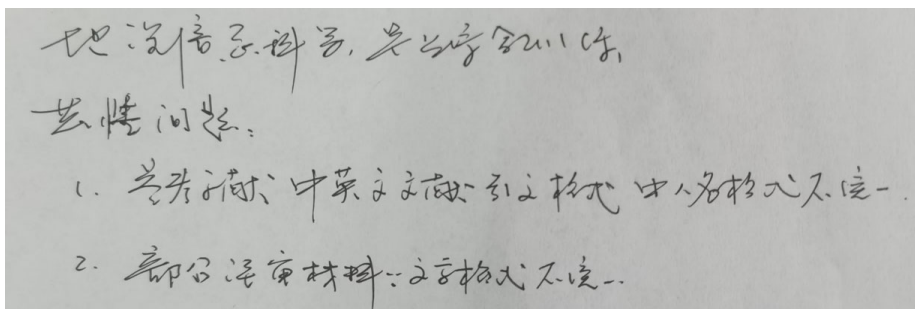 地理信息科学,共审查11件,
共性问题:
1. 参考文献中英文文献引文格式中人名格式不统一.
2. 部分送审材料:文字格式不统一.